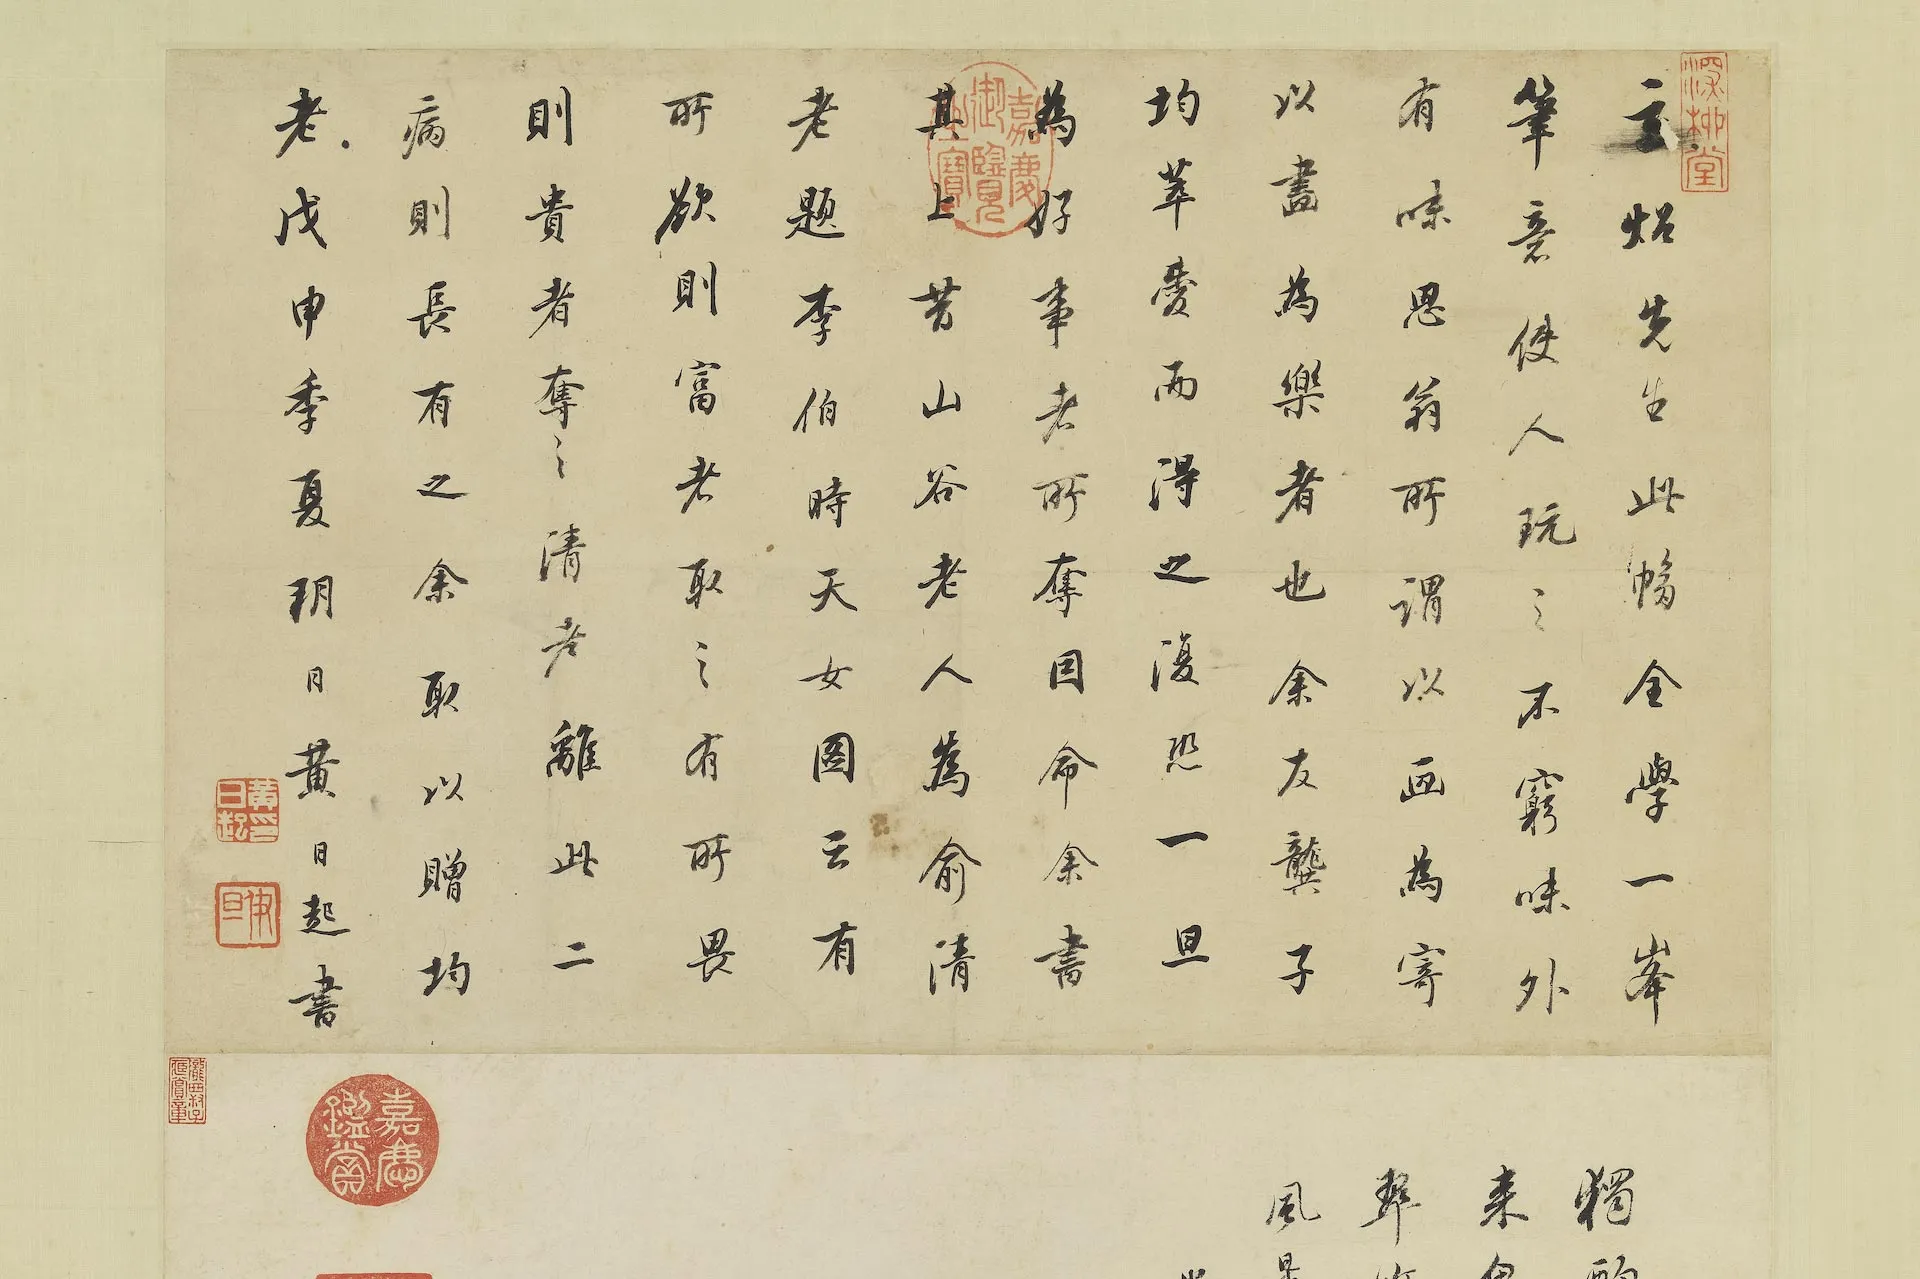 玄炤先生此幀全學一峯
筆意使人玩〻不窮味外
有味思翁所謂以画為寄
以畫為樂者也余友龔子
均萃愛而得之復恐一旦
為好事者所奪因命余書
其上昔山谷老人為俞清
老題李伯時天女圖云有
所欲則富者取〻有所畏
則貴者奪〻清老離此二
病則長有之余取以贈均
老戊申季夏玥日黄日起書
深柳堂
嘉慶御覽之寶
黃日起印
嘉慶鑑賞
獨
來
犂
風